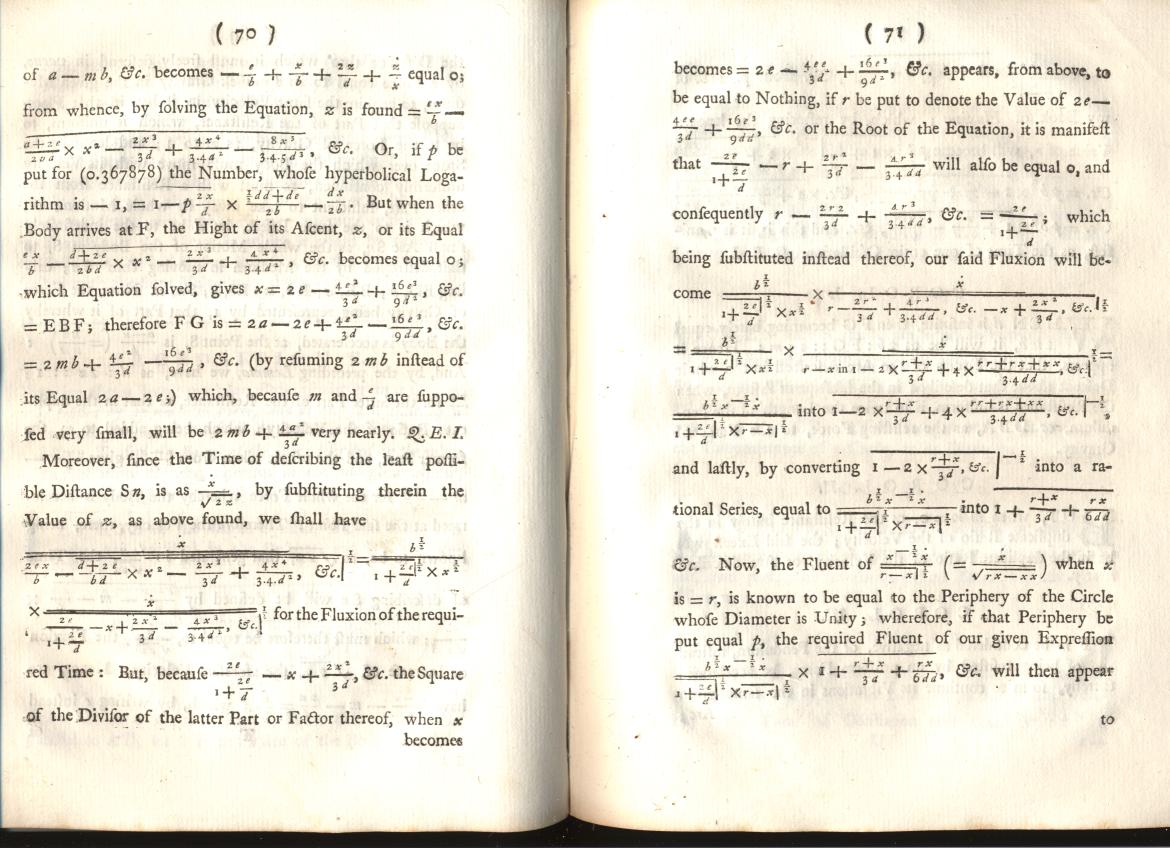 ( 70 )
of a — m b, &c. becomes — e/b + x/b + 2z/d + ż/ẋ equal 0;
from whence, by ſolving the Equation, z is found = ex/b —
× x² — 2x³/3d + 4x⁴/3.4d² — 8x⁵/3.4.5d³, &c. Or, if p be
put for (0.367878) the Number, whoſe hyperbolical Loga-
rithm is — 1, = 1—p 2x/d × ½dd+de/2b — dx/2b. But when the
Body arrives at F, the Hight of its Aſcent, z, or its Equal
ex/b — d+2e/2bd × x² — 2x³/3d + 4x⁴/3.4d², &c. becomes equal 0;
which Equation ſolved, gives x = 2e — 4e²/3d + 16e³/9d², &c.
= EBF; therefore F G is = 2a — 2e + 4e²/3d — 16e³/9dd, &c.
= 2mb + 4e²/3d — 16e³/9dd, &c. (by reſuming 2mb inſtead of
its Equal 2a — 2e;) which, becauſe m and e/d are ſuppo-
ſed very ſmall, will be 2mb + 4a²/3d very nearly. Q. E. I.
Moreover, ſince the Time of deſcribing the leaſt poſſi-
ble Diſtance Sn, is as ẋ/√2z, by ſubſtituting therein the
Value of z, as above found, we ſhall have
ẋ / 2ex/b — d+2e/bd × x² — 2x³/3d + 4x⁴/3.4.d², &c.|½ = b½ / 1+2e/d|½ × x½
× ẋ / 2e/1+2e/d — x + 2x²/3d — 4x³/3.4d², &c.|½ for the Fluxion of the requi-
red Time: But, becauſe 2e/1+2e/d — x + 2x²/3d, &c. the Square
of the Diviſor of the latter Part or Factor thereof, when x
becomes
( 71 )
becomes = 2e — 4ee/3d + 16e³/9d², &c. appears, from above, to
be equal to Nothing, if r be put to denote the Value of 2e—
4ee/3d + 16e³/9dd, &c. or the Root of the Equation, it is manifeſt
that 2e/1+2e/d — r + 2r²/3d — 4r³/3.4dd will alſo be equal 0, and
conſequently r — 2r2/3d + 4r³/3.4dd, &c. = 2e/1+2e/d; which
being ſubſtituted inſtead thereof, our ſaid Fluxion will be-
come b½ / 1+2e/d|½ × x½ × ẋ / r — 2r²/3d + 4r³/3.4dd, &c. — x + 2x²/3d, &c.|½
= b½ / 1+2e/d|½ × x½ × ẋ / r—x in 1—2×r+x/3d + 4×rr+rx+xx/3.4dd, &c.|½ =
b½ x—½ ẋ / 1+2e/d|½ × r—x|½ into 1—2×r+x/3d + 4×rr+rx+xx/3.4dd, &c.|—½,
and laſtly, by converting 1—2×r+x/3d, &c.|—½ into a ra-
tional Series, equal to b½ x—½ ẋ / 1+2e/d|½ × r—x|½ into 1 + r+x/3d + rx/6dd
&c. Now, the Fluent of x—½ ẋ / r—x|½ (= ẋ/√rx—xx) when x
is = r, is known to be equal to the Periphery of the Circle
whoſe Diameter is Unity; wherefore, if that Periphery be
put equal p, the required Fluent of our given Expreſſion
b½ x—½ ẋ / 1+2e/d|½ × r—x|½ × 1 + r+x/3d + rx/6dd, &c. will then appear
to